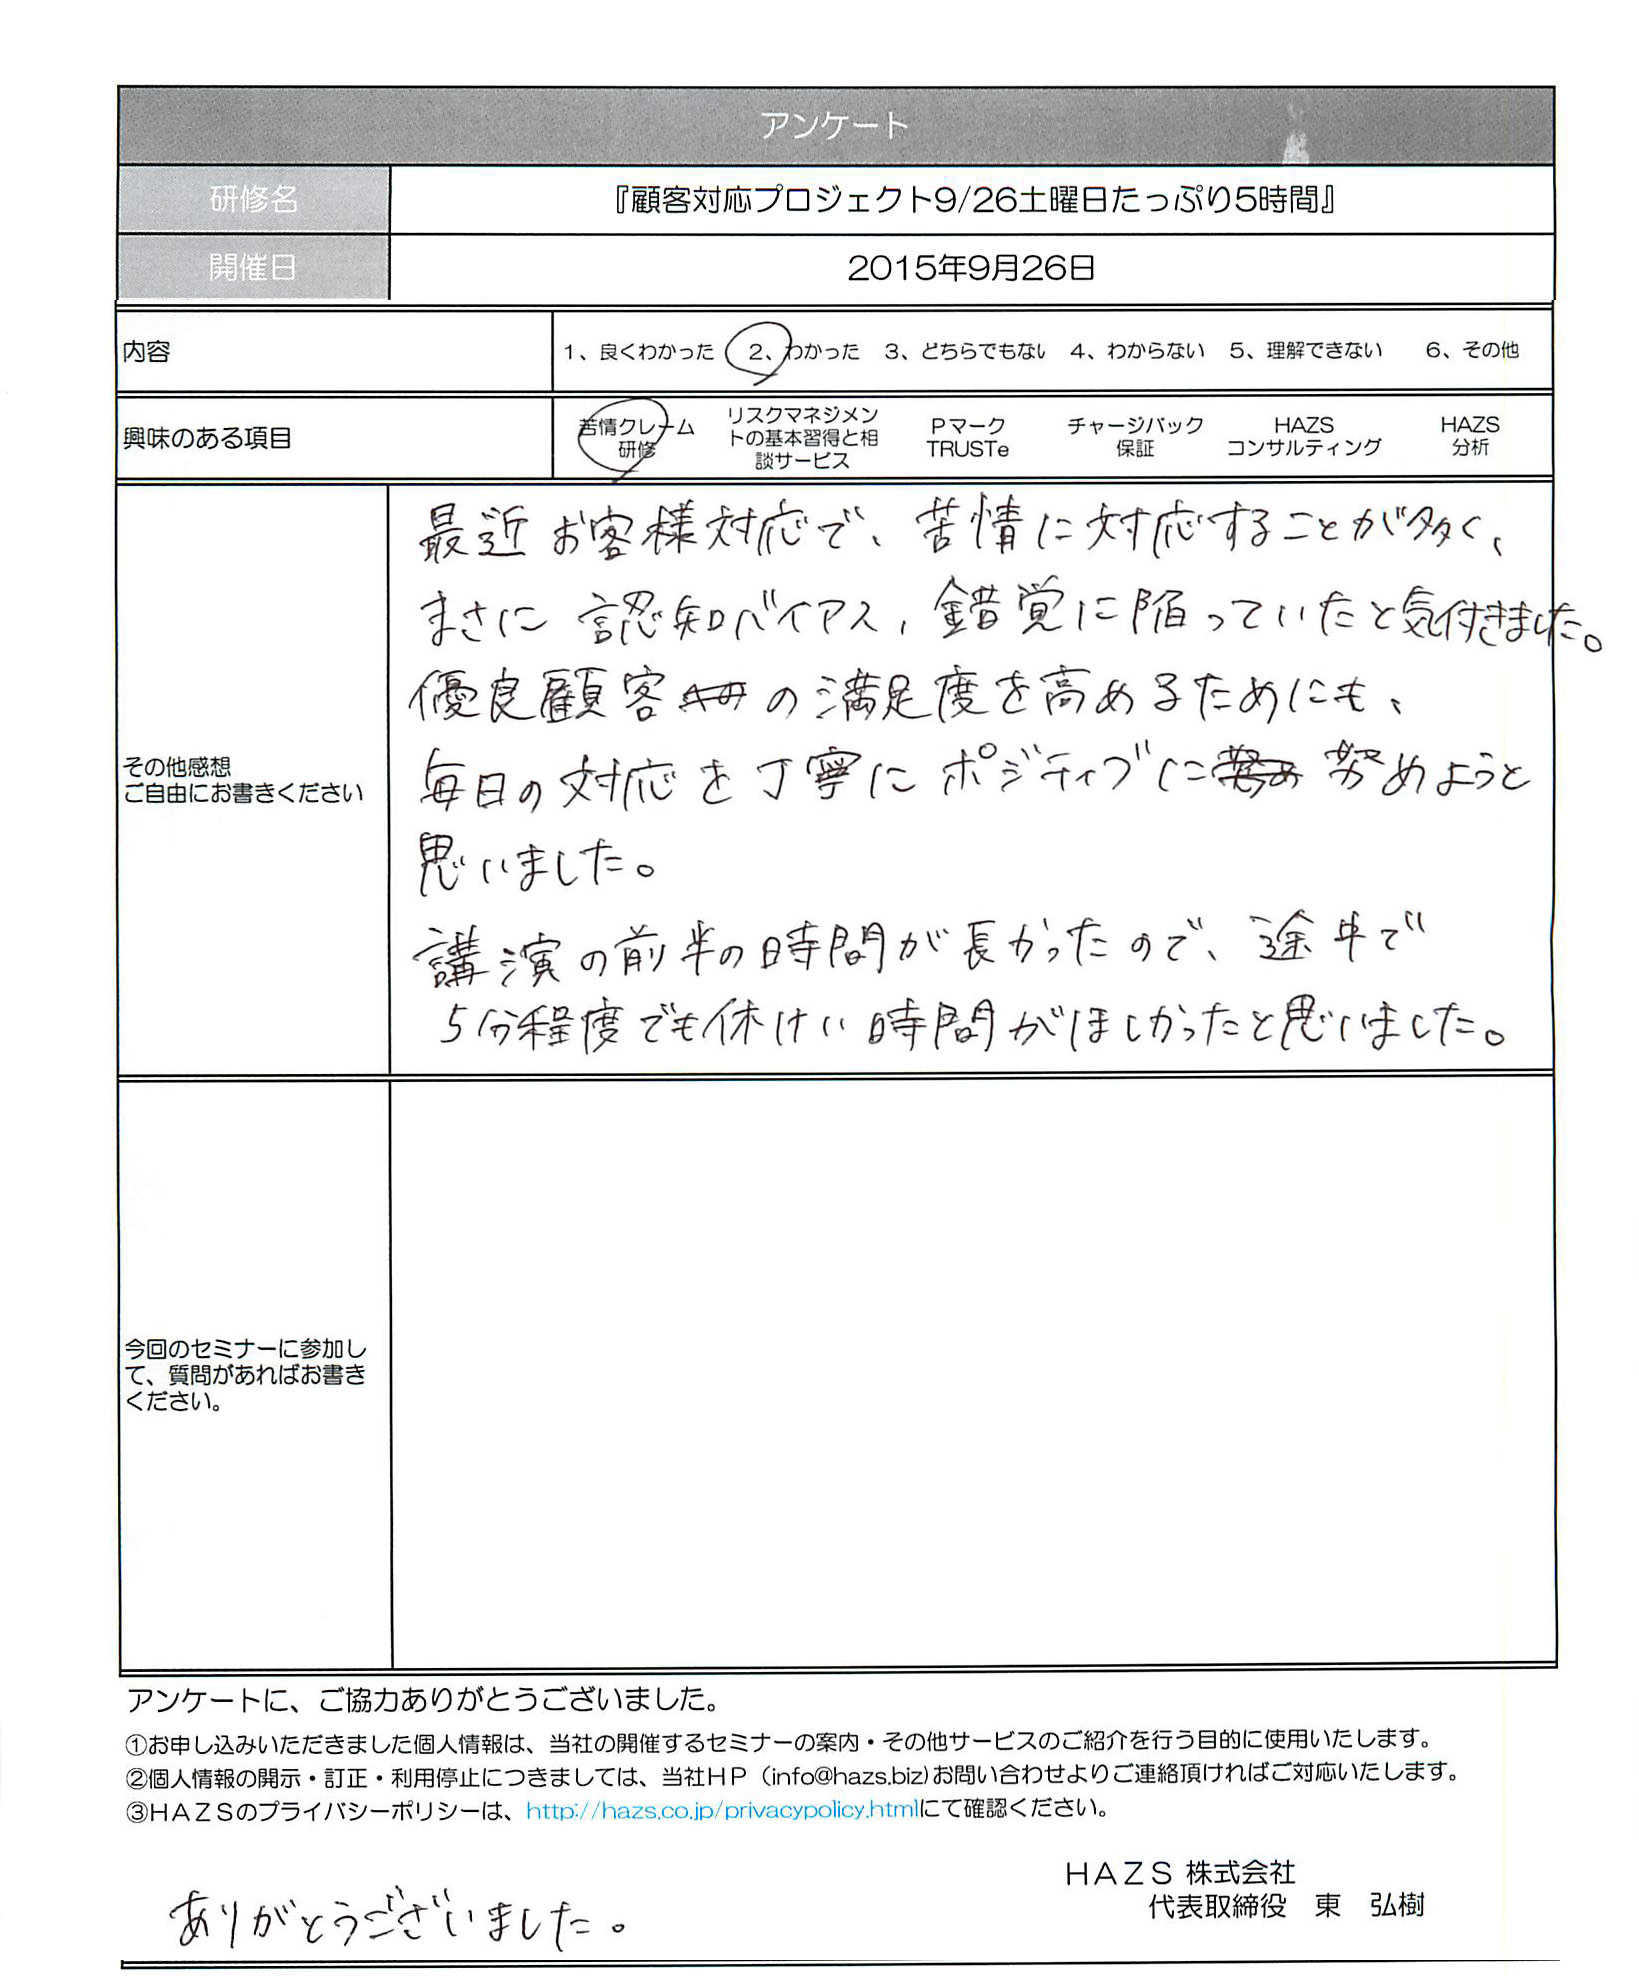 アンケート
研修名
『顧客対応プロジェクト9/26土曜日たっぷり5時間』
開催日
2015年9月26日
内容
1、良くわかった 2、わかった 3、どちらでもない 4、わからない 5、理解できない 6、その他
興味のある項目
苦情クレーム
研修
リスクマネジメン
トの基本習得と相
談サービス
Pマーク
TRUSTe
チャージバック
保証
HAZS
コンサルティング
HAZS
分析
その他感想
ご自由にお書きください
最近お客様対応で、苦情に対応することが多く、
まさに認知バイアス,錯覚に陥っていたと気付きました。
優良顧客の満足度を高めるためにも、
毎日の対応を丁寧にポジティブに努めようと
思いました。
講演の前半の時間が長かったので、途中で
5分程度でも休けい時間がほしかったと思いました。
今回のセミナーに参加し
て、質問があればお書き
ください。
アンケートに、ご協力ありがとうございました。
①お申し込みいただきました個人情報は、当社の開催するセミナーの案内・その他サービスのご紹介を行う目的に使用いたします。
②個人情報の開示・訂正・利用停止につきましては、当社HP(info@hazs.biz)お問い合わせよりご連絡頂ければご対応いたします。
③HAZSのプライバシーポリシーは、http://hazs.co.jp/privacypolicy.htmlにて確認ください。
HAZS 株式会社
代表取締役 東 弘樹
ありがとうございました。